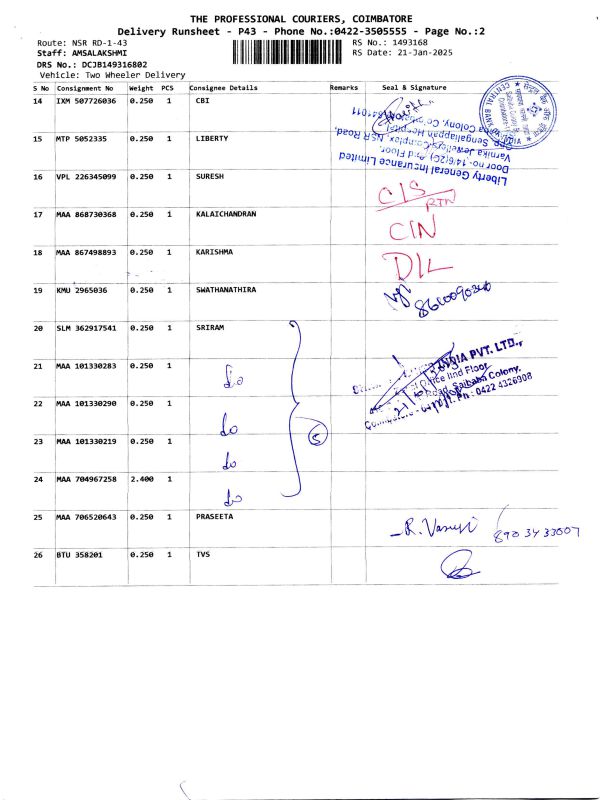 THE PROFESSIONAL COURIERS, COIMBATORE
Delivery Runsheet - P43 - Phone No.:0422-3505555 - Page No.:2
Route: NSR RD-1-43
RS No.: 1493168
Staff: AMSALAKSHMI
RS Date: 21-Jan-2025
DRS No.: DCJB149316802
Vehicle: Two Wheeler Delivery
S No Consignment No Weight PCS Consignee Details Remarks Seal & Signature
14 IXM 507726036 0.250 1 CBI
15 MTP 5052335 0.250 1 LIBERTY
Liberty General Insurance Limited
Door no- 14/6(2C) 3rd Floor,
Varnika Jewellers Complex, NSR Road,
OPP. Sengaliappan Hospital,
16 VPL 226345099 0.250 1 SURESH CIS RTN
17 MAA 868730368 0.250 1 KALAICHANDRAN CIN
18 MAA 867498893 0.250 1 KARISHMA D/L
19 KMU 2965036 0.250 1 SWATHANATHIRA
20 SLM 362917541 0.250 1 SRIRAM
21 MAA 101330283 0.250 1 do
INDIA PVT. LTD.,
IInd Floor,
Road, Saibaba Colony,
Ph : 0422 4326908
22 MAA 101330290 0.250 1 do
5
23 MAA 101330219 0.250 1 do
24 MAA 704967258 2.400 1 do
25 MAA 706520643 0.250 1 PRASEETA 8903433007
26 BTU 358201 0.250 1 TVS